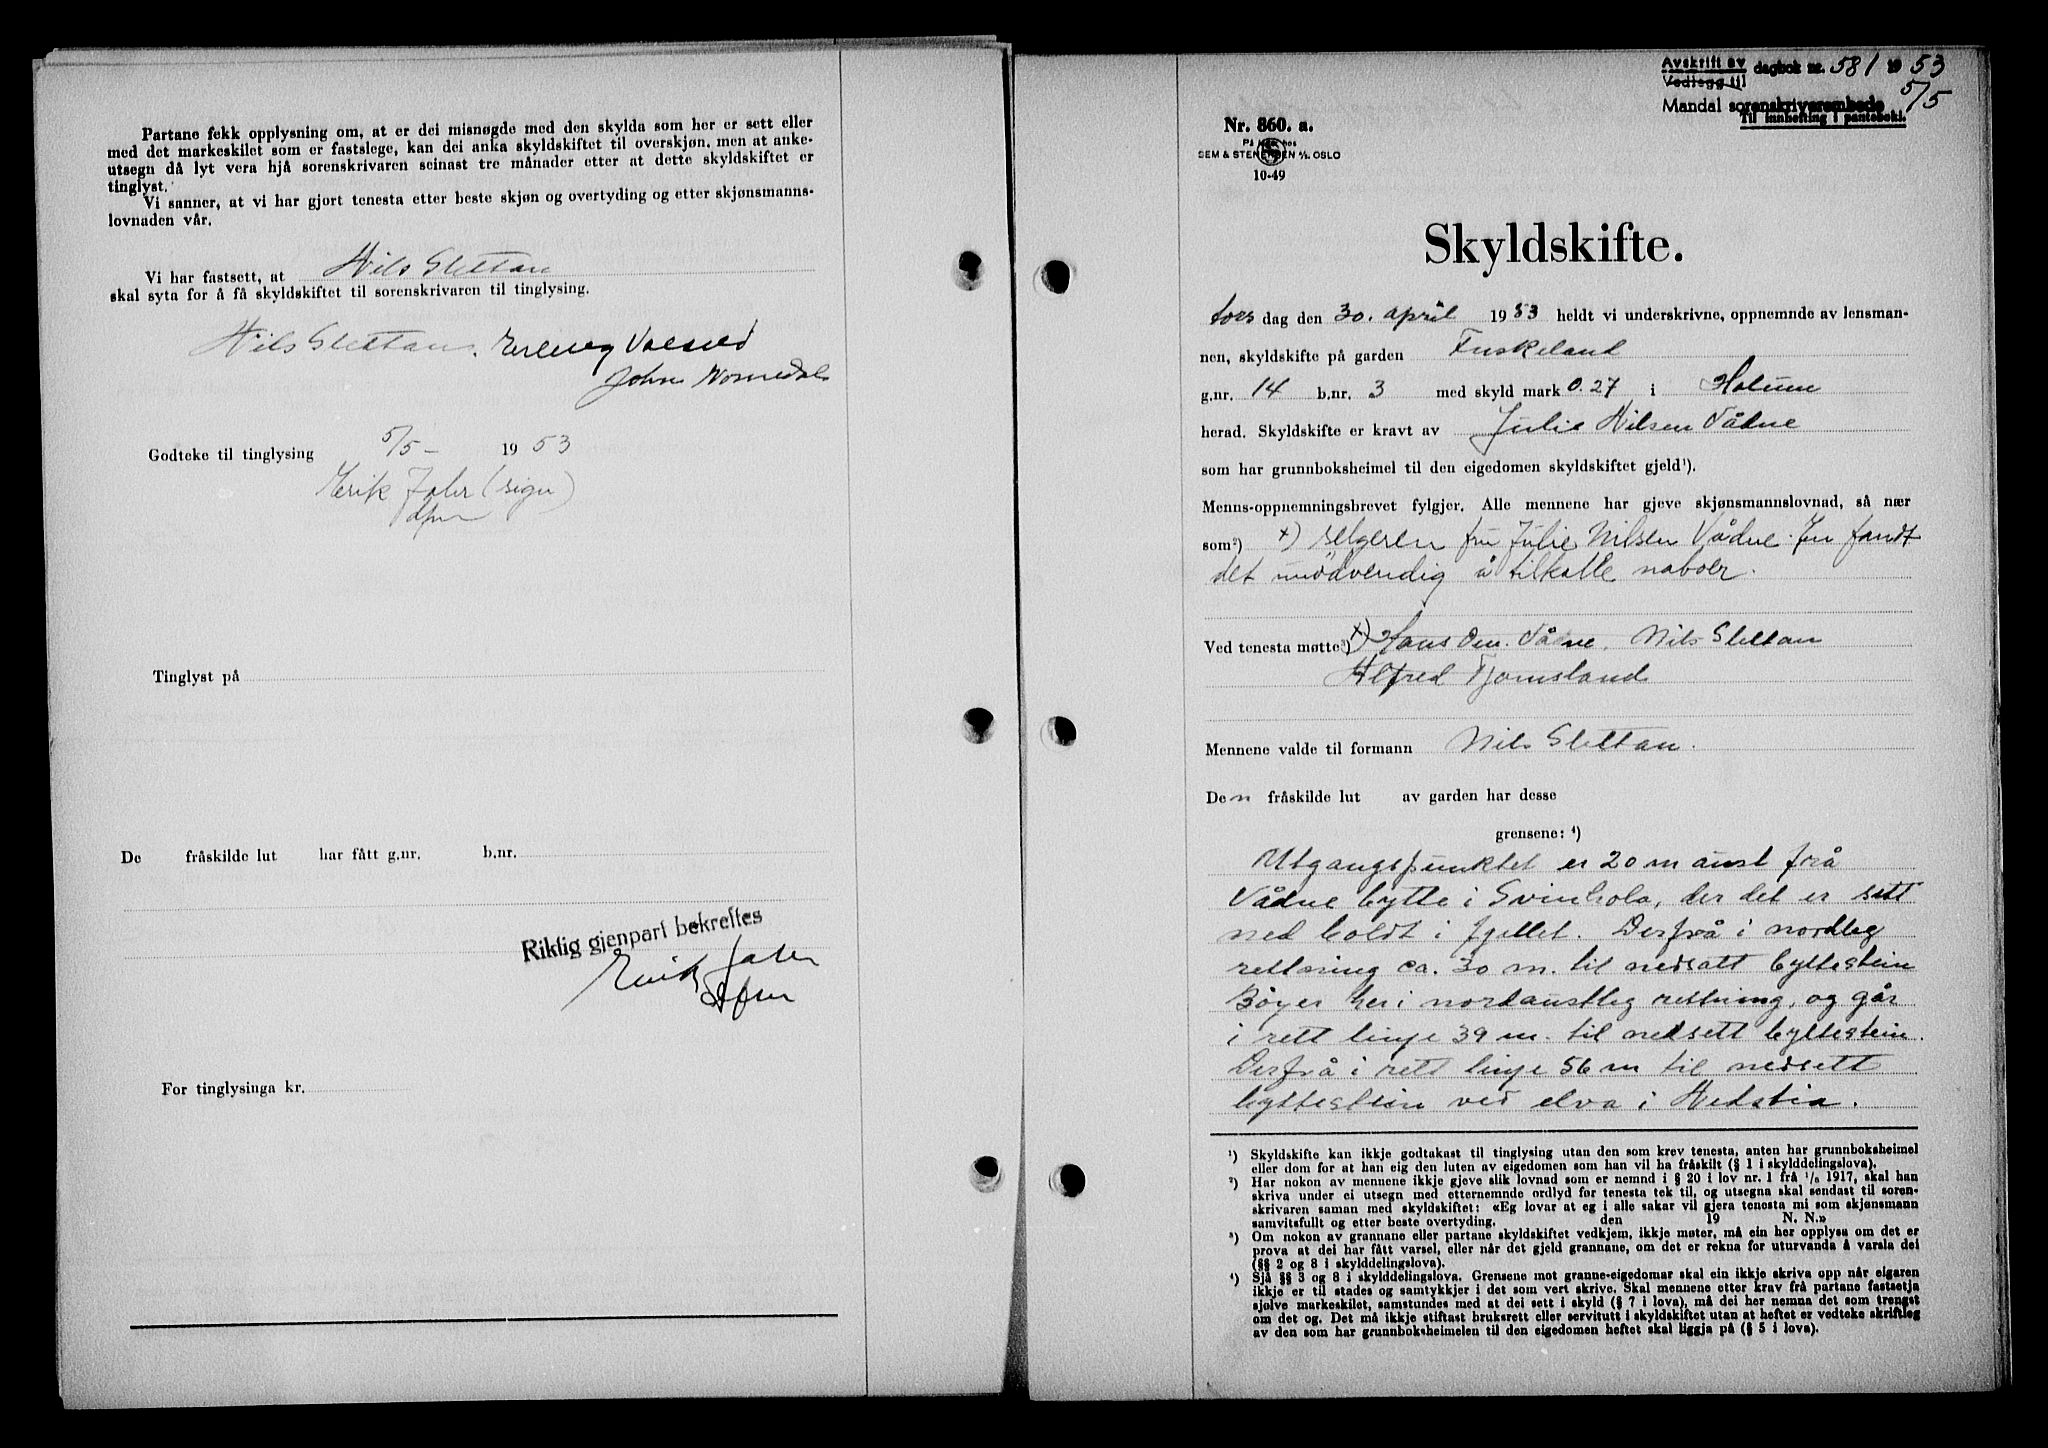 Partane fekk opplysning om, at er dei misnøgde med den skylda som her er sett eller
med det markeskilet som er fastslege, kan dei anka skyldskiftet til overskjøn. men at anke-
utsegn då lyt vera hjå sorenskrivaren seinast tre månader etter at dette skyldskiftet er
tinglyst.
Vi sanner, at vi har gjort tenesta etter beste skjøn og overtyding og etter skjønsmanns-
lovnaden vår.
Vi har fastsett, at Nils Slettan
skal syta for å få skyldskiftet til sorenskrivaren til tinglysing.
Nils Slettan. Erling
John
Godteke til tinglysing 5/5- 1953
Erik Jahr (sign)
Tinglyst på
De fråskilde lut har fått g.nr. b.nr.
Riktig gjenpart bekreftes
Erik Jahr
For tinglysinga kr.
Avskrift av dagbok nr. 581 1953
Vedlegg til 5/5
Mandal sorenskriverembede
Til innhefting i pantebok.
Nr. 860. a.
På lager hos
SEM & STENERSEN A/S. OSLO
10-49
Skyldskifte.
tors dag den 30. april 1953 heldt vi underskrivne, oppnemnde av lensman-
nen, skyldskifte på garden Fuskeland
g.nr. 14 b.nr. 3 med skyld mark 0.27 i Holum
herad. Skyldskifte er kravt av Julie Nilsen Vådne
som har grunnboksheimel til den eigedomen skyldskiftet gjeld¹).
Menns-oppnemningsbrevet fylgjer. Alle mennene har gjeve skjønsmannslovnad, så nær
som²) +) selgeren fru Julie Nilsen Vådne. En fandt
det unödvendig å tilkalle naboer.
Ved tenesta møtte³) +) Hans Vådne. Nils Slettan
Alfred Tjomsland
Mennene valde til formann Nils Slettan.
Den fråskilde lut av garden har desse
grensene: ⁴)
Utgangspunktet er 20 m aust frå
Vådne bytte i Svinhola, der det er satt
ned boldt i fjellet. Derfrå i nordleg
rettning ca. 30 m. til nedsatt byttestein
Böyer her i nordaustleg rettning, og går
i rett linje 39 m. til nedsett byttestein.
Derfrå i rett linje 56 m til nedsett
byttestein ved elva i Hedstia.
¹) Skyldskifte kan ikkje godtakast til tinglysing utan den som krev tenesta, anten har grunnboksheimel
eller dom for at han eig den luten av eigedomen som han vil ha fråskilt (§ 1 i skylddelingslova).
²) Har nokon av mennene ikkje gjeve slik lovnad som er nemnd i § 20 i lov nr. 1 frå 1/6 1917, skal han
skriva under ei utsegn med etternemnde ordlyd før tenesta tek til, og utsegna skal sendast til soren-
skrivaren saman med skyldskiftet: «Eg lovar at eg i alle sakar vil gjera tenesta mi som skjønsmann
samvitsfullt og etter beste overtyding. den 19 N. N.»
³) Om nokon av grannane eller partane skyldskiftet vedkjem, ikkje møter, må ein her opplysa om det er
prova at dei har fått varsel, eller når det gjeld grannane, om det er rekna for uturvanda å varsla dei
(§§ 2 og 8 i skylddelingslova).
⁴) Sjå §§ 3 og 8 i skylddelingslova. Grensene mot granne-eigedomar skal ein ikkje skriva opp når eigaren
ikkje er til stades og samtykkjer i det som vert skrive. Skal mennene etter krav frå partane fastsetja
sjølve markeskilet, samstundes med at dei sett i skyld (§ 7 i lova), må dei her nemna det som trengst
om det og. Det må ikkje stiftast bruksrett eller servitutt i skyldskiftet utan at heftet er vedteke skriftleg
av den som har grunnboksheimelen til den eigedomen heftet skal liggja på (§ 5 i lova).